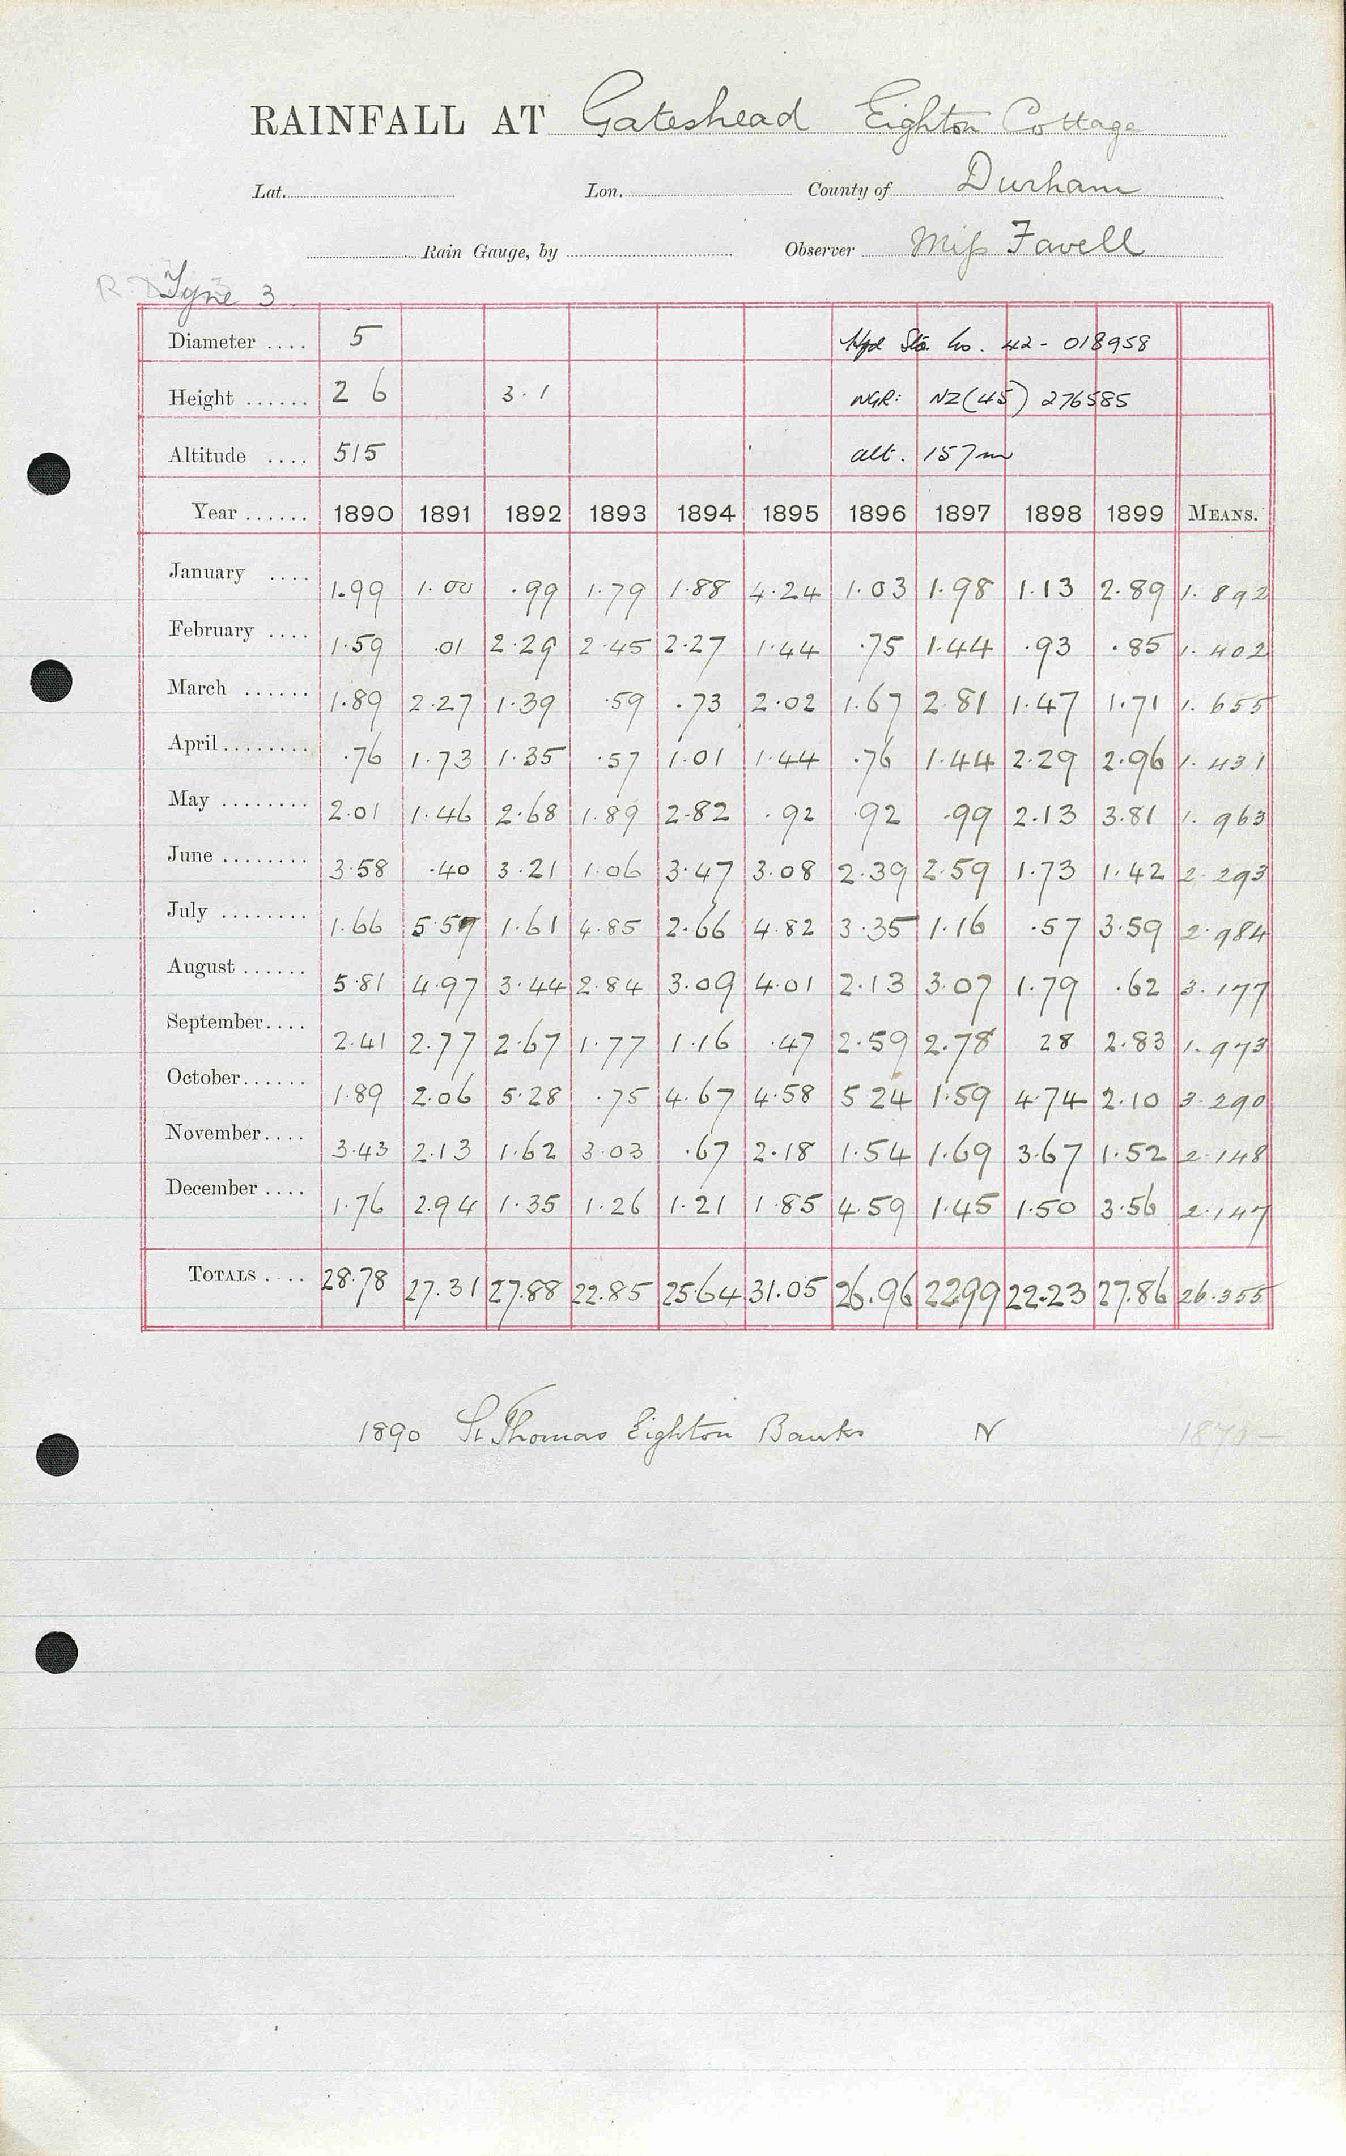 RAINFALL AT Gateshead Eighton Cottage
Lat. Lon. County of Durham
Rain Gauge, by Observer Miss Favell
Tyne 3
Diameter .... 5 Hyd Sta. No. 42 - 018958
Height ...... 2 6 3.1 NGR: NZ(45) 276585
Altitude .... 515 alt. 157m
Year ...... 1890 1891 1892 1893 1894 1895 1896 1897 1898 1899 MEANS.
January .... 1.99 1.00 .99 1.79 1.88 4.24 1.03 1.98 1.13 2.89 1.892
February .... 1.59 .01 2.29 2.45 2.27 1.44 .75 1.44 .93 .85 1.402
March ...... 1.89 2.27 1.39 .59 .73 2.02 1.67 2.81 1.47 1.71 1.655
April........ .76 1.73 1.35 .57 1.01 1.44 .76 1.44 2.29 2.96 1.431
May ........ 2.01 1.46 2.68 1.89 2.82 .92 .92 .99 2.13 3.81 1.963
June ........ 3.58 .40 3.21 1.06 3.47 3.08 2.39 2.59 1.73 1.42 2.293
July ........ 1.66 5.57 1.61 4.85 2.66 4.82 3.35 1.16 .57 3.59 2.984
August ...... 5.81 4.97 3.44 2.84 3.09 4.01 2.13 3.07 1.79 .62 3.177
September.... 2.41 2.77 2.67 1.77 1.16 .47 2.59 2.78 28 2.83 1.973
October...... 1.89 2.06 5.28 .75 4.67 4.58 5 24 1.59 4.74 2.10 3.290
November.... 3.43 2.13 1.62 3.03 .67 2.18 1.54 1.69 3.67 1.52 2.148
December .... 1.76 2.94 1.35 1.26 1.21 1.85 4.59 1.45 1.50 3.56 2.147
TOTALS .... 28.78 27.31 27.88 22.85 25.64 31.05 26.96 2299 22.23 27.86 26.355
1890 St Thomas Eighton Banks N